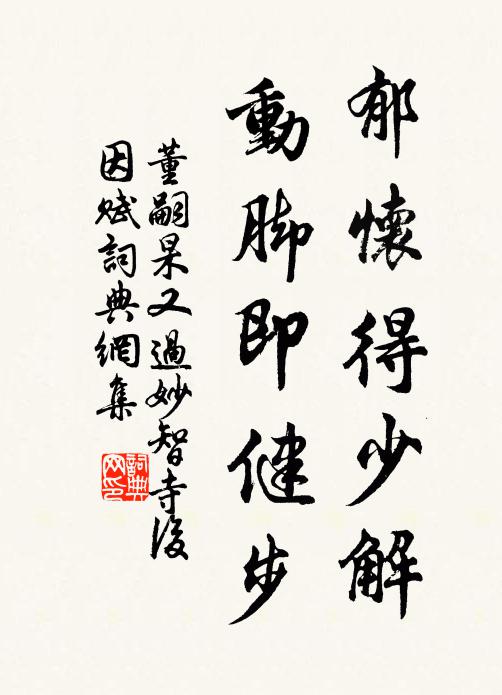 郁懷得少解
動脚即健步
董嗣杲又過妙智寺後
因賦詞典網集
詞典
网印